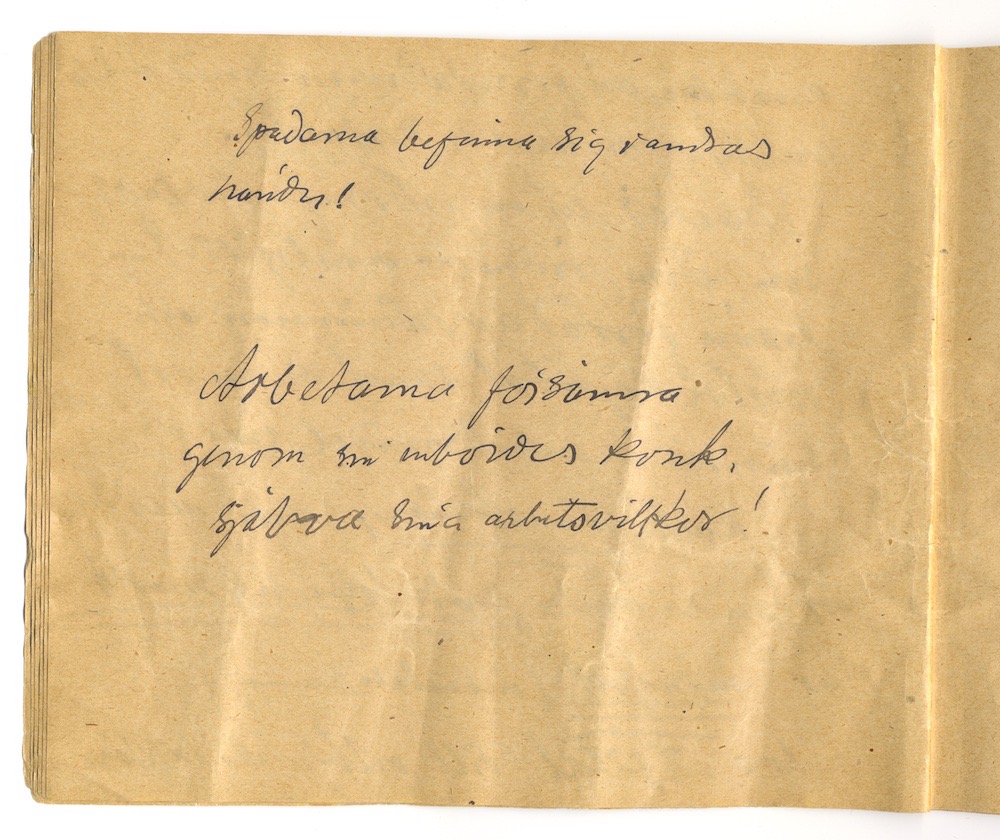 Spadarna befinna sig i andras
händer!
Arbetarna försämra
genom sin inbördes konk.
själva sina arbetsvillkor!